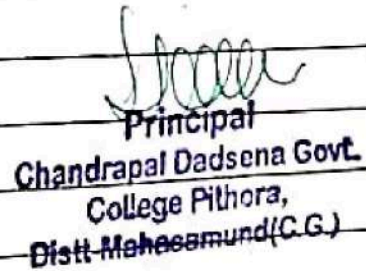 Principal
Chandrapal Dadsena Govt.
College Pithora,
Distt-Mahasamund(C.G.)